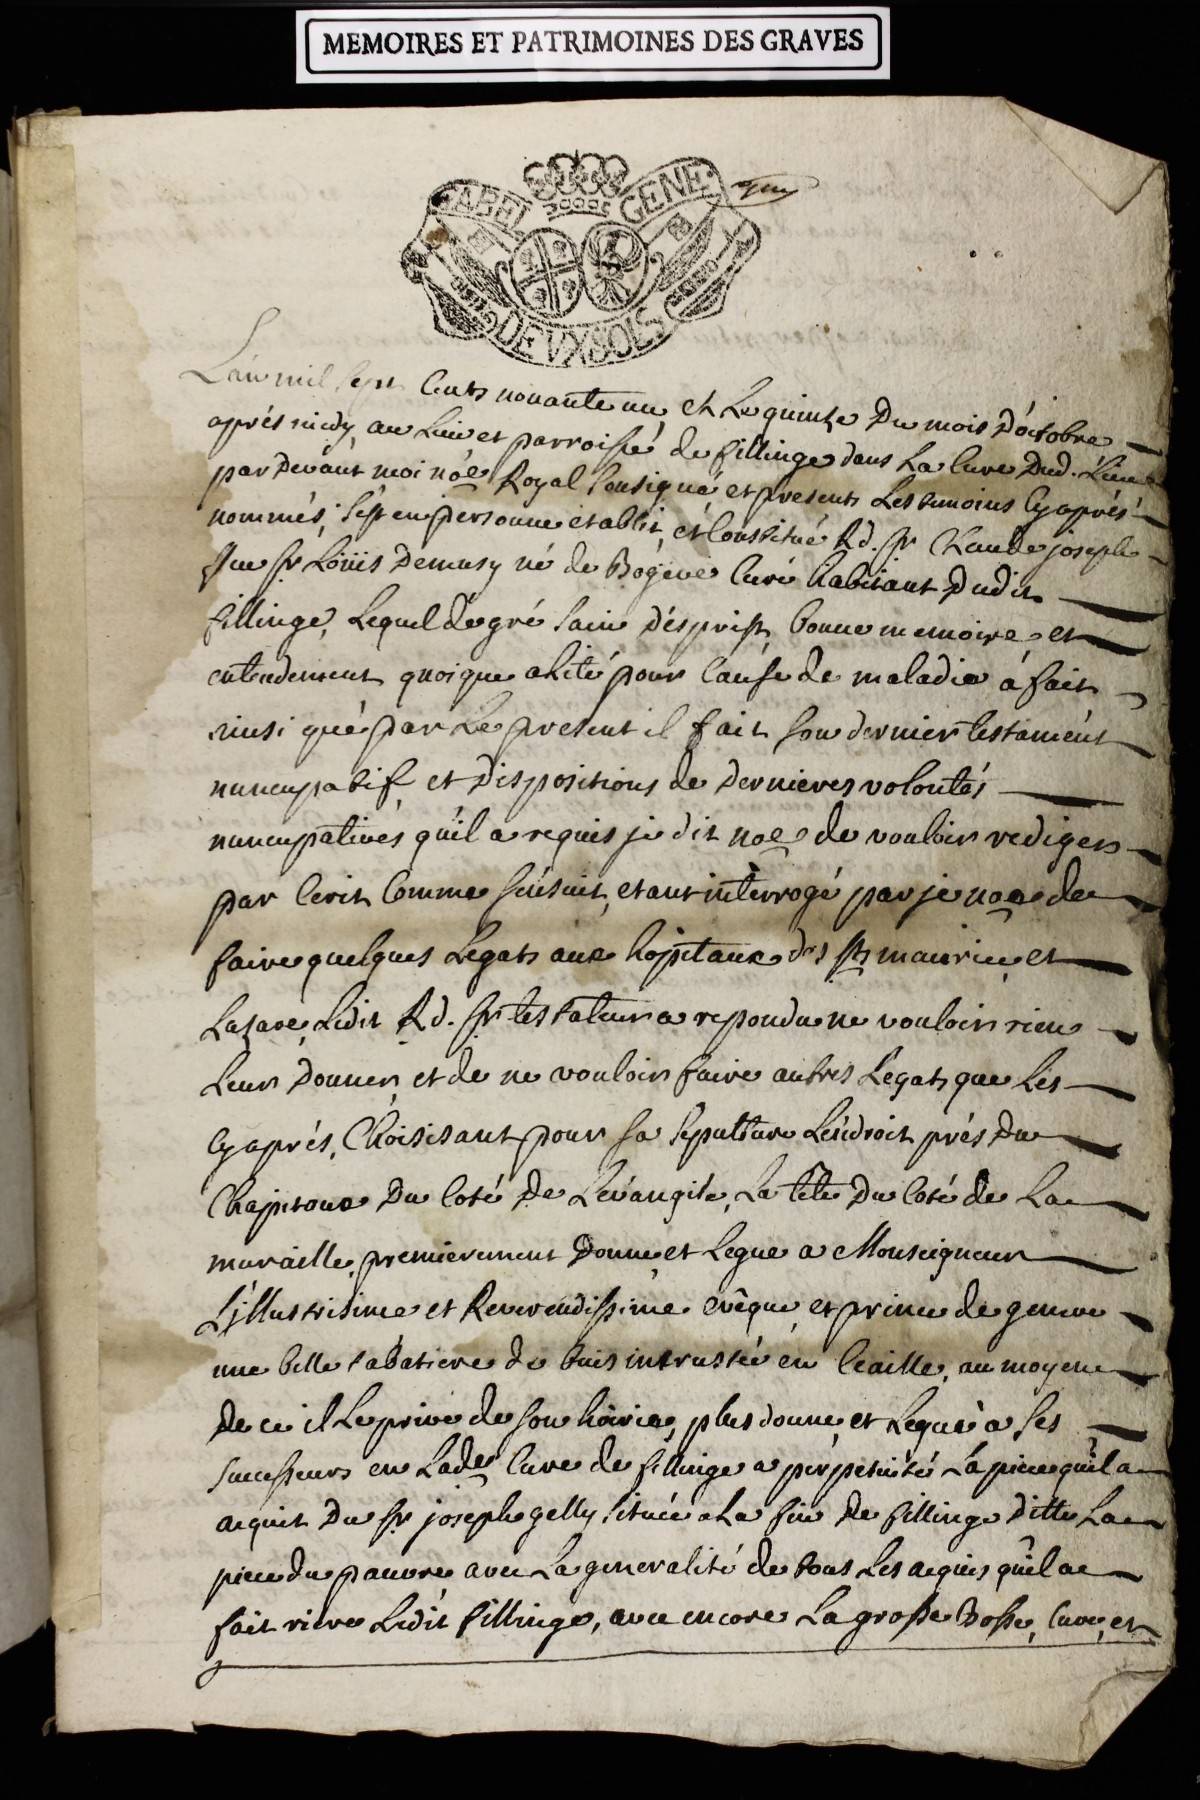 MEMOIRES ET PATRIMOINES DES GRAVES
GABEL GENE
DEUX SOLS
L'an mil sept cents nonante un, et le quinze du mois d'octobre
aprés midy, au lieu et parroisse de fillinge dans la cure dud. Lieu
par devant moi noe Royal sousigné, et presents les temoins cy aprés
nommés, s'est en personne etablit, et constitué Rd. sr Claude joseph
feu sr Loüis Demusy né de Bogéve curé habitant dudit
fillinge, Lequel de gré sain d'esprit, bonne memoire et
entendement quoique alité pour cause de maladie á fait
ainsi que par le present il fait son dernier testament
nuncupatif et dispositions de dernieres volontés
nuncupatives qu'il a requis je dit noe de vouloir rediger
par ecrit comme s'ensuit, etant interrogé par je noe de
faire quelques legats aux hopitaux des sts maurice et
Lazare, Ledit Rd. sr testateur a repondu ne vouloir rien
leur donner, et de ne vouloir faire autres Legats que les
cy aprés, Choisisant pour sa sepulture L'endroit prés du
Chapiteau du coté de L'evangile, La tete du coté de La
muraille, premierement donne et legue a Monseigneur
L'jllustrisime et Reverendissime evêque et prince de geneve
une belle tabatiere de buis incrustée en ecaille, au moyen
de ce il le prive de son hoirie, plus donne et legue a ses
successeurs en Lade cure de fillinge a perpetuité La piece qu'il a
acquit du sr joseph gelly située a La fin de fillinge ditte La
piece du pauvre avec La generalité de tous Les acquis qu'il a
fait riere Ledit fillinge, avec encore La grosse Bosse, cuve, et